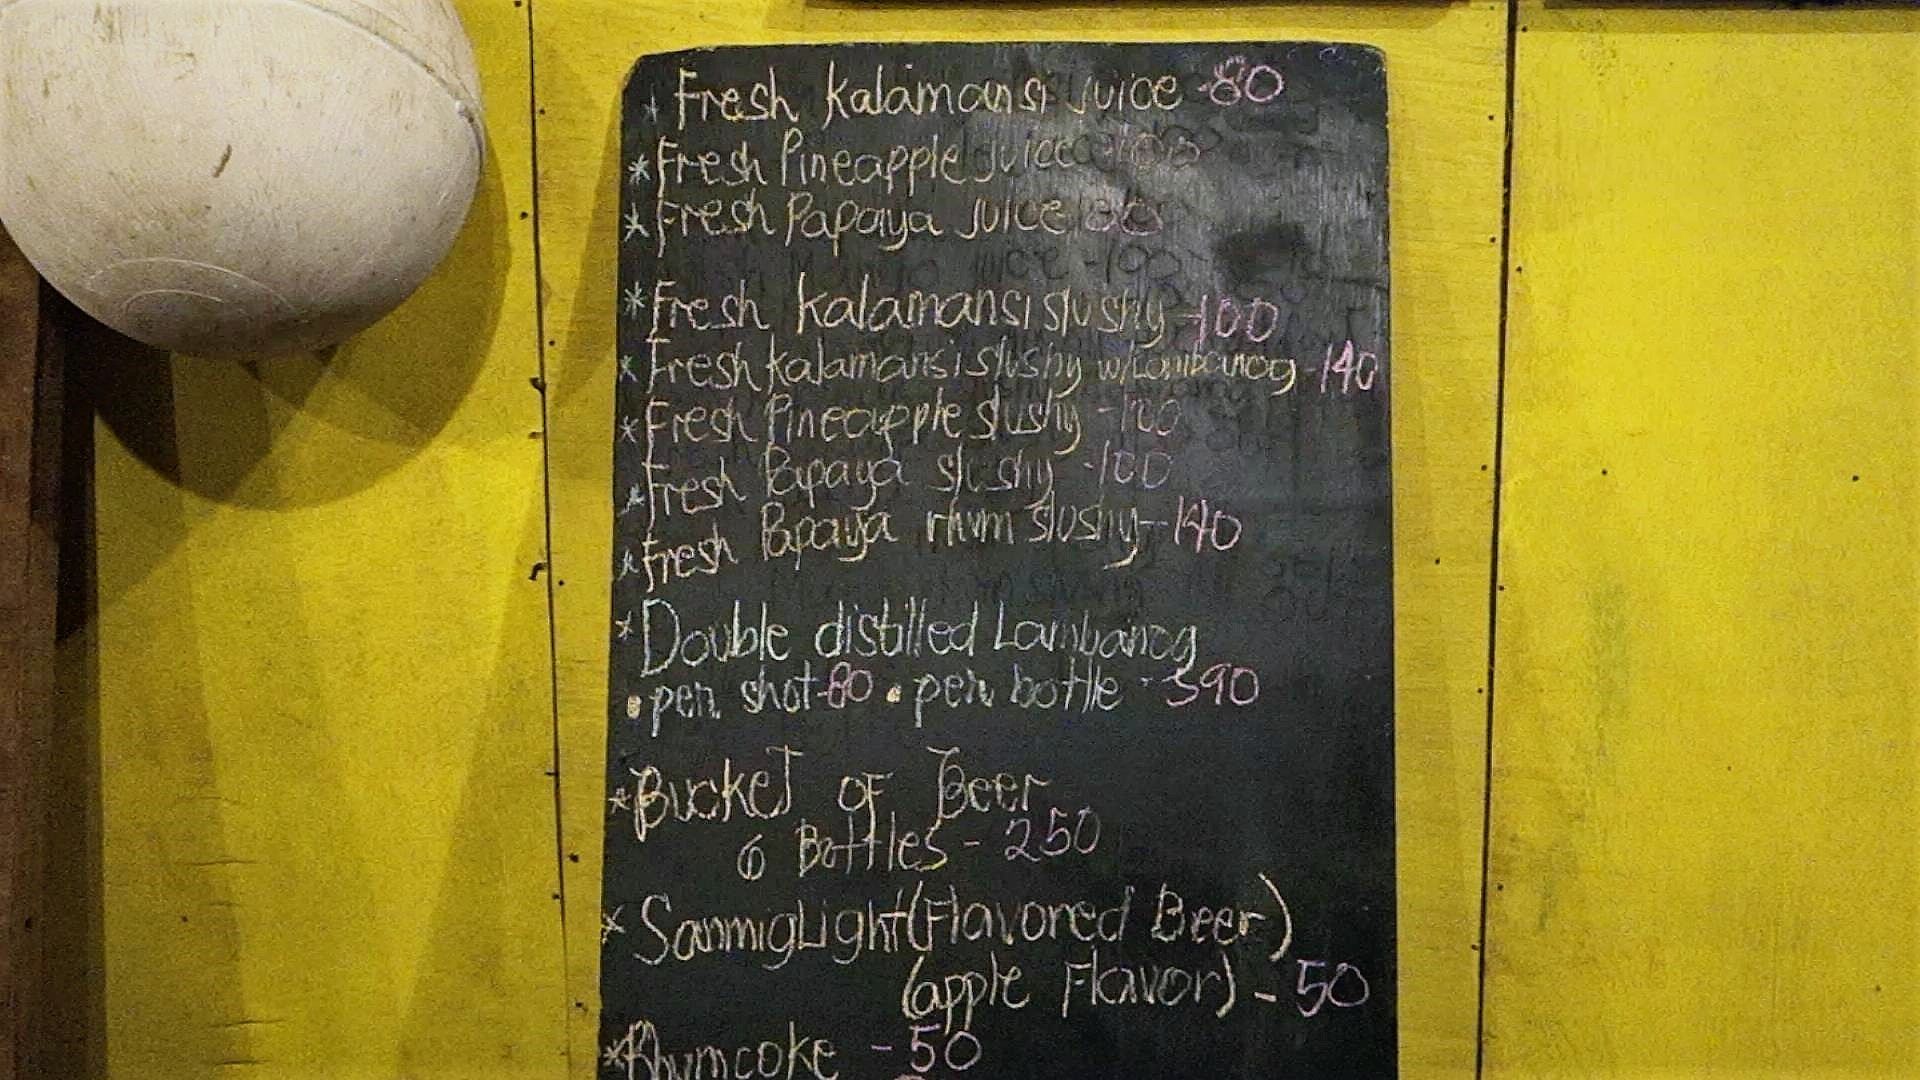 * Fresh kalamansi juice -80
* Fresh Pineapple juice
* Fresh Papaya juice
* Fresh kalamansi slushy -100
* Fresh kalamansi slushy w/Lambanog -140
* Fresh Pineapple slushy -100
* Fresh Papaya slushy -100
* Fresh Papaya rhum slushy -140
* Double distilled Lambanog
• per shot-80 • per bottle - 390
* Bucket of Beer
6 Bottles - 250
* SanmigLight (Flavored Beer)
(apple Flavor) - 50
* Rhumcoke - 50